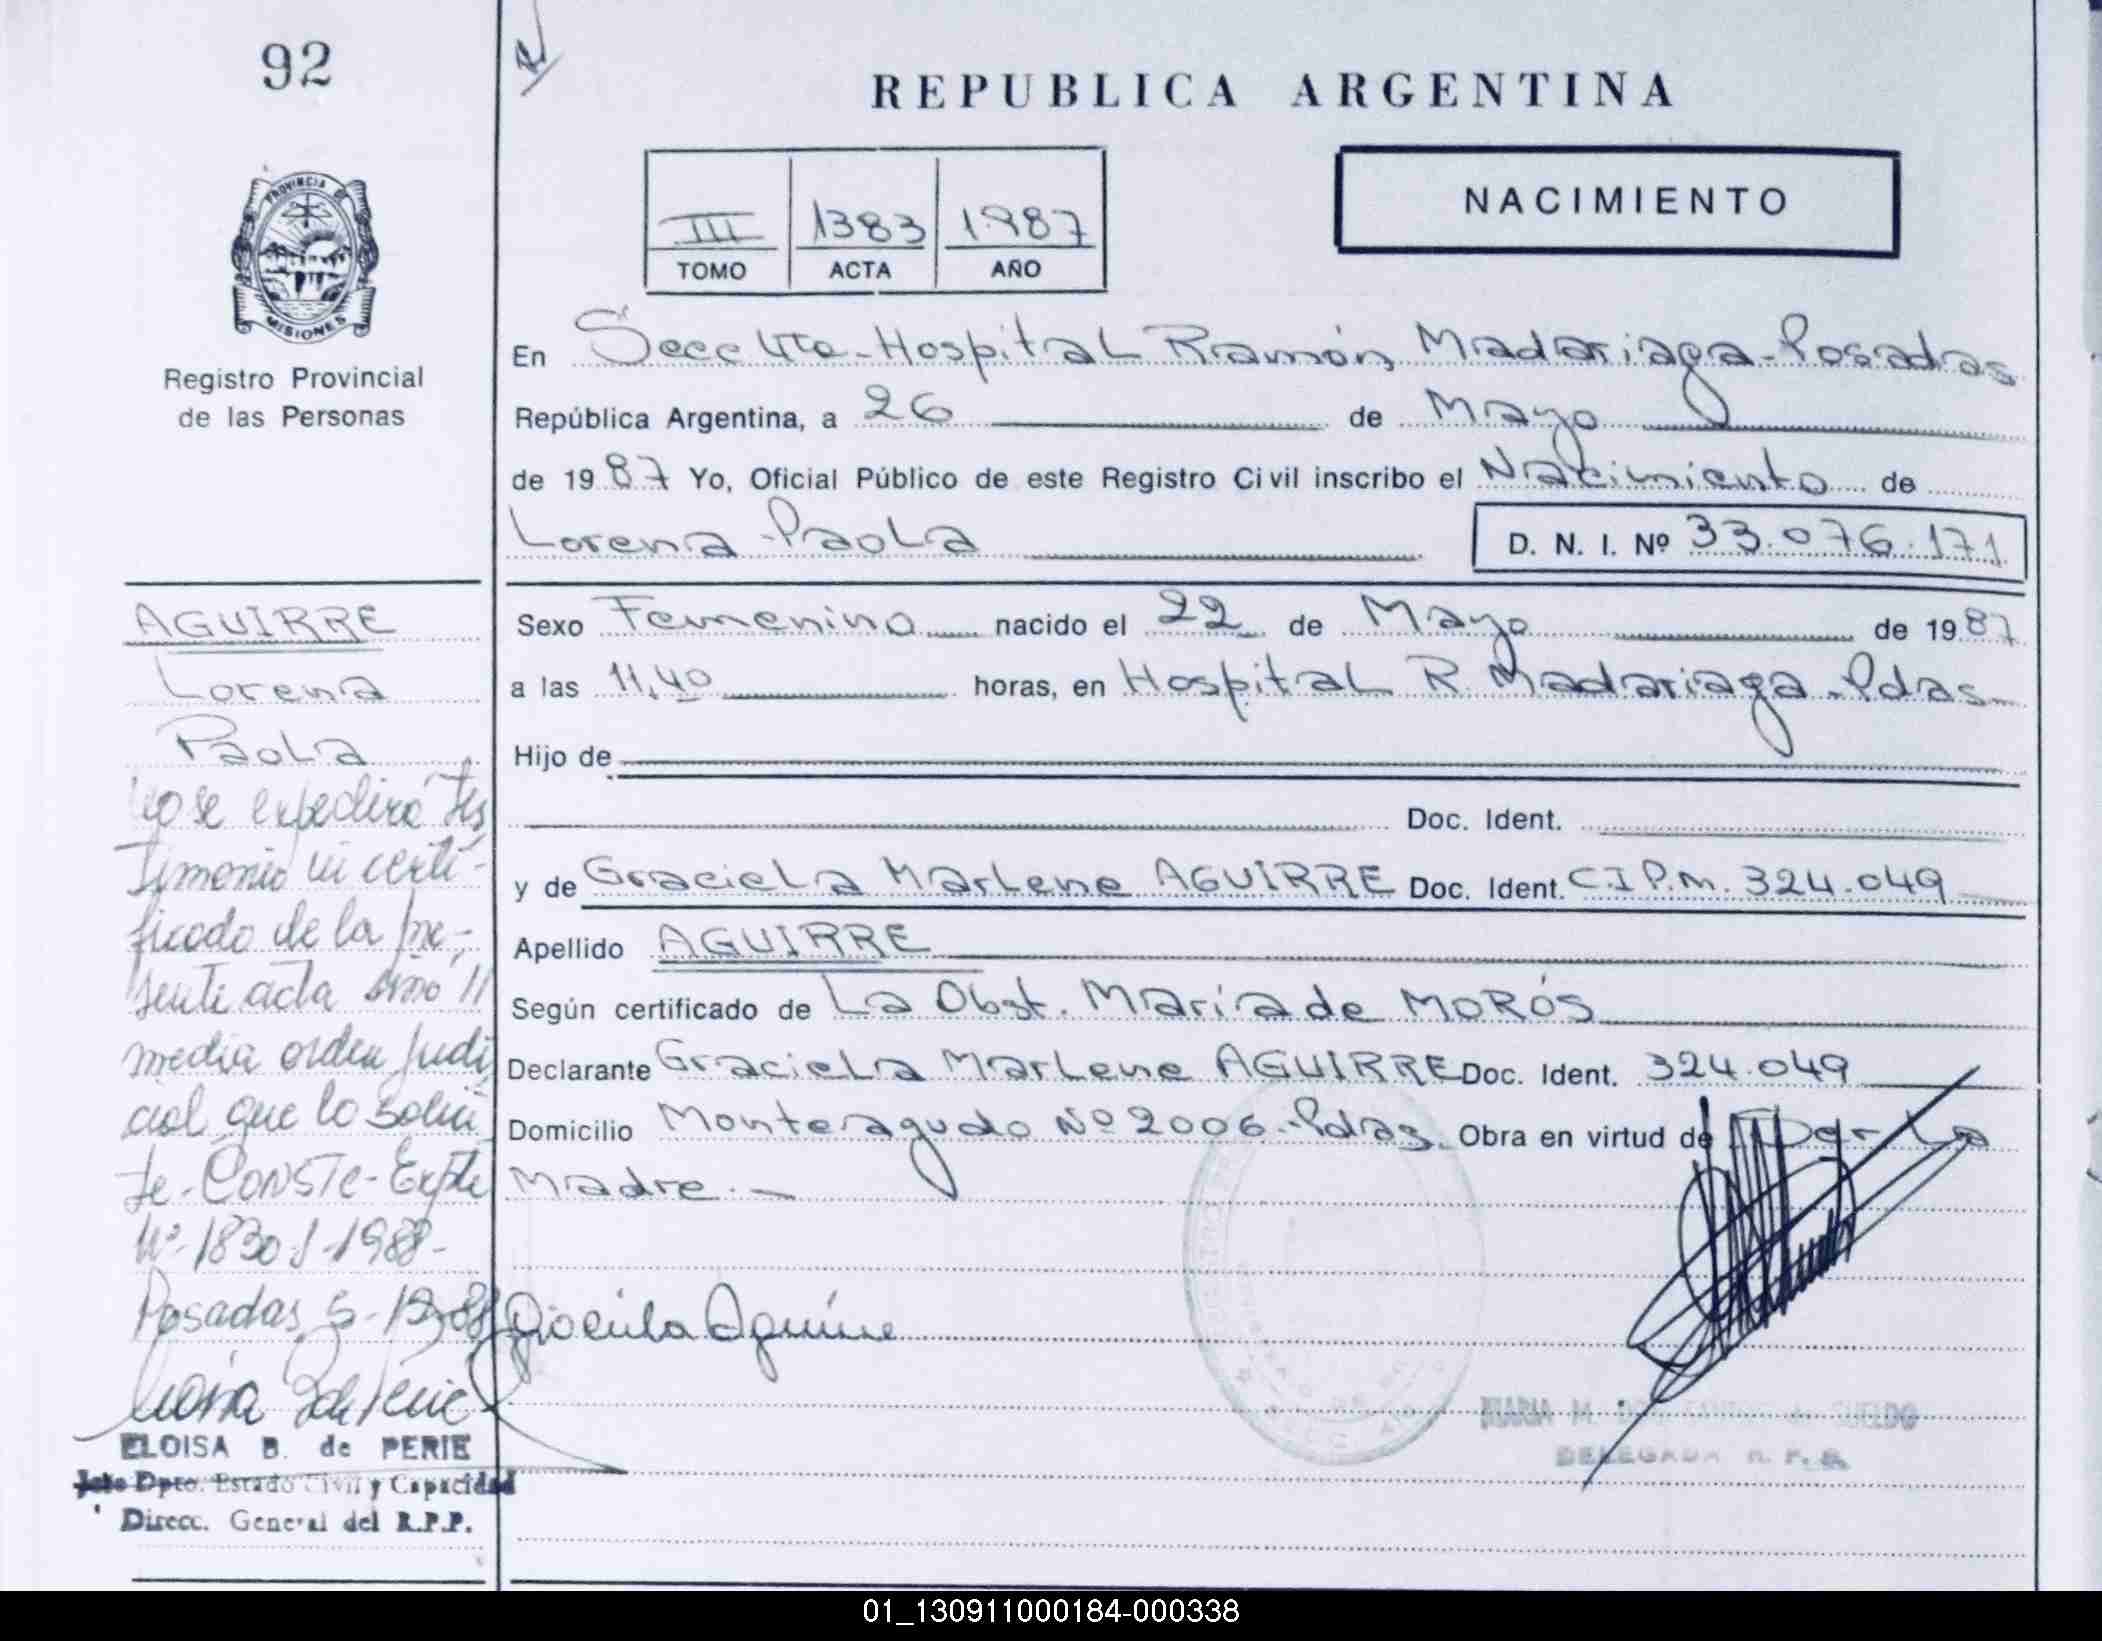 92
PROVINCIA DE
MISIONES
Registro Provincial
de las Personas
AGUIRRE
Lorena
Paola
No se expedirá tes
timonio ni certi-
ficado de la pre-
sente acta sino
media orden judi
cial que lo solici
te - CONSTE - Expte
Nº 1830 1988-
Posadas, 5-12-88
ELOISA B. de PERIE
Jefe Dpto. Estado Civil y Capacidad
Direcc. General del R.P.P.
REPUBLICA ARGENTINA
III 1383 1987
TOMO ACTA AÑO
NACIMIENTO
En Secc 4ta - Hospital Ramón Madariaga - Posadas
República Argentina, a 26 de Mayo
de 1987 Yo, Oficial Público de este Registro Civil inscribo el Nacimiento de
Lorena Paola D. N. I. Nº 33.076.171
Sexo Femenino nacido el 22 de Mayo de 1987
a las 11,40 horas, en Hospital R. Madariaga - Pdas
Hijo de
Doc. Ident.
y de Graciela Marlene AGUIRRE Doc. Ident. C.I P.M. 324.049
Apellido AGUIRRE
Según certificado de La Obst. María de MORÓS
Declarante Graciela Marlene AGUIRRE Doc. Ident. 324.049
Domicilio Monteagudo Nº 2006 - Pdas. Obra en virtud de Der La
Madre. -
Graciela Aguirre
MARIA M. SUELDO
DELEGADA R. P. P.
01_130911000184-000338